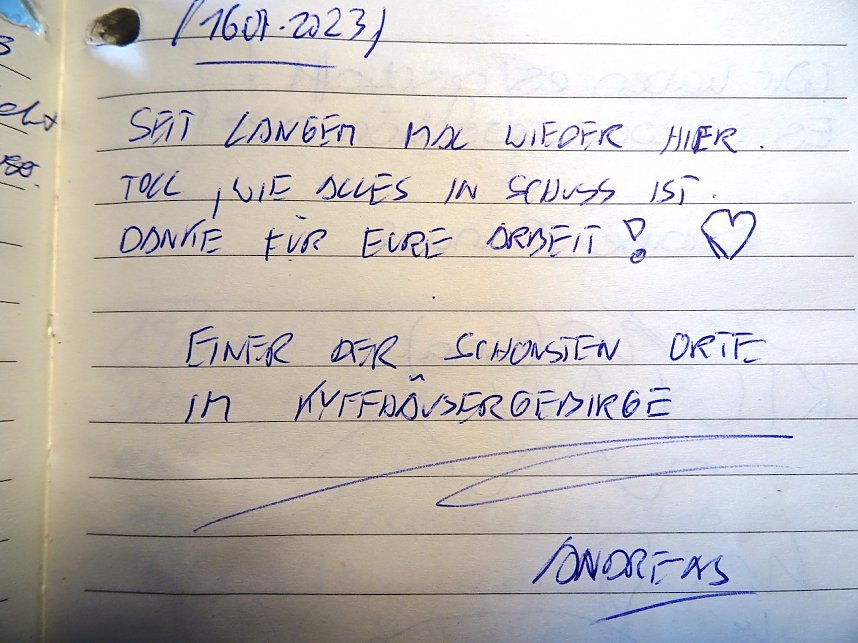 (16.07.2023)
SEIT LANGEM MAL WIEDER HIER.
TOLL, WIE ALLES IN SCHUSS IST.
DANKE FÜR EURE ARBEIT! ♡
EINER DER SCHÖNSTEN ORTE
IM KYFFHÄUSERGEBIRGE
ANDREAS